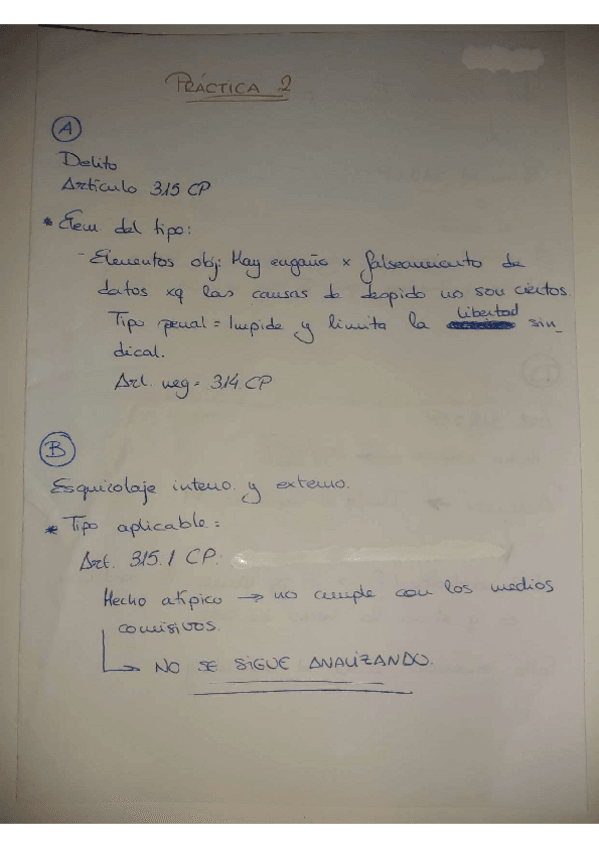 PRÁCTICA 2
A
Delito
Artículo 315 CP
* Elem. del tipo:
- Elementos obj: Hay engaño x falseamiento de
datos xq las causas de despido no son ciertos
Tipo penal = Impide y limita la libertad sin_
dical.
Art. neg = 314 CP
B
Esquirolaje interno y externo.
* Tipo aplicable:
Art. 315.1 CP.
Hecho atípico → no cumple con los medios
comisivos.
↳ NO SE SIGUE ANALIZANDO.